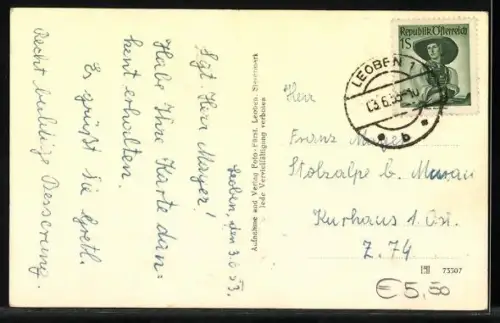 Leoben, den 3.6.53.
Sgt. Herr Mayer!
Habe Ihre Karte dan-
kent erhalten.
Es grüßt Sie Gretl.
Recht baldige Besserung.
Aufnahme und Verlag Foto-Fürst, Leoben, Steiermark
Jede Vervielfältigung verboten
Republik Österreich
1S
LEOBEN 1
b
Herr
Franz Mayer
Stolzalpe b. Murau
Kurhaus 1. Ost.
Z. 74
73507
€ 5,50